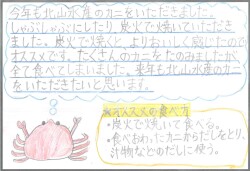 今年も北山水産のカニをいただきました。
しゃぶしゃぶにしたり、炭火で焼いていただき
ました。炭火で焼くと、よりおいしく感じたので
オススメです。たくさんのカニをたのみましたが、
全て食べてしまいました。来年も北山水産のカニ
をいただきたいと思います。
オススメの食べ方
・炭火で焼いて食べる。
・食べおわったカニからだしをとり、
汁物などのだしに使う。